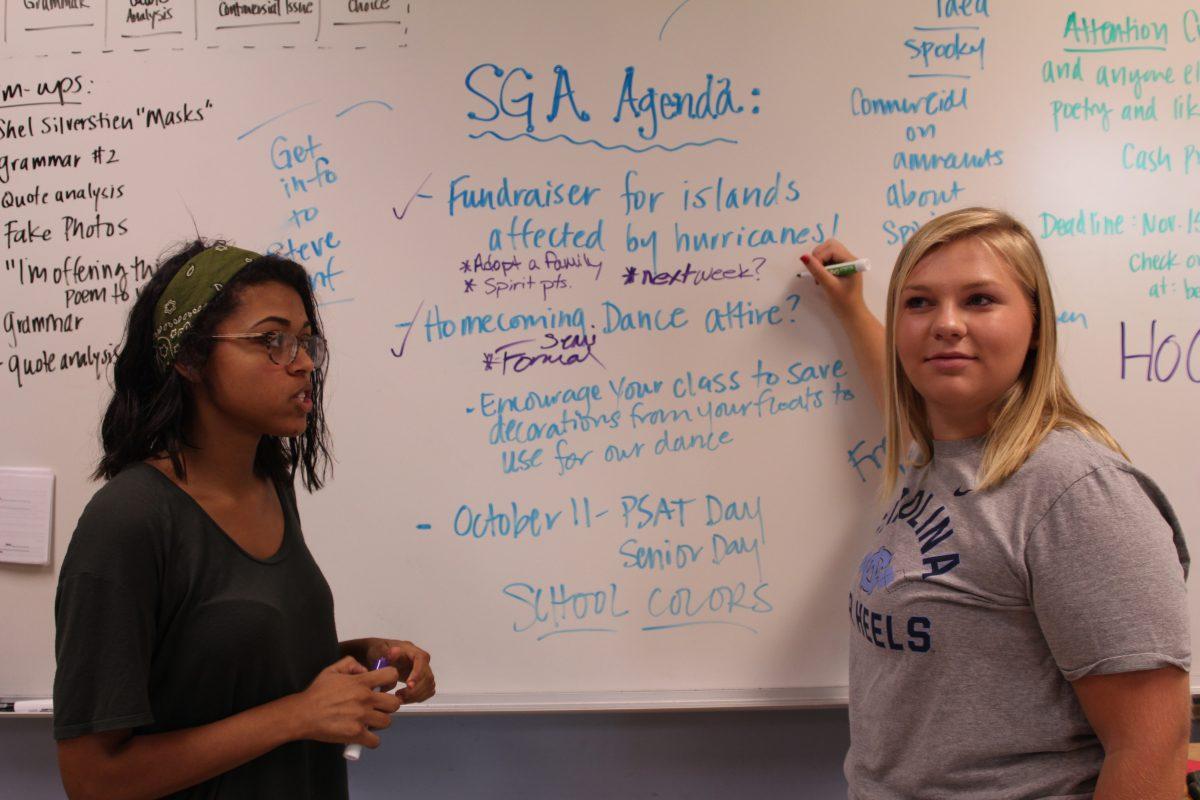 Grammar
Quote
Analysis
Controversial Issue
Choice
m-ups:
Shel Silverstien "Masks"
grammar #2
Quote analysis
Fake Photos
"I'm offering th
poem to
grammar
- quote analysis
Get
info
to
Steve
SGA Agenda:
- Fundraiser for islands
affected by hurricanes!
*Adopt a family
*next week?
* Spirit pts.
- Homecoming Dance attire?
Semi
*Formal
· Encourage your class to save
decorations from your floats to
use for our dance
- October 11 - PSAT Day
Senior Day
SCHOOL COLORS
idea
spooky
Commercial
on
about
Attention
and anyone el
poetry and lik
Cash P
Deadline: Nov. 1
Check o
at: be
HOC
HEELS